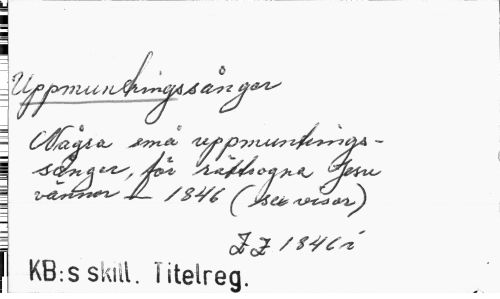 Uppmuntringssånger
Några små uppmuntrings-
sånger, för rättsogna Jesu
vänner — 1846 (se visor)
1846 i
KB:s skill. Titelreg.